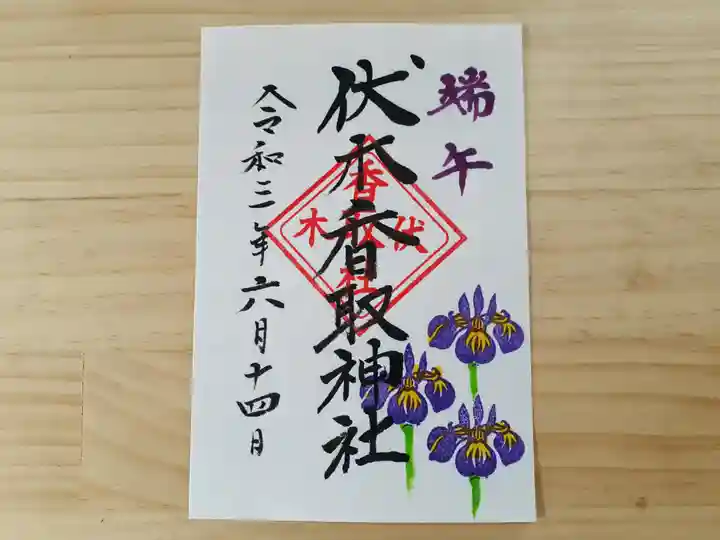 端午
伏木香取神社
令和三年六月十四日
香取社
伏木